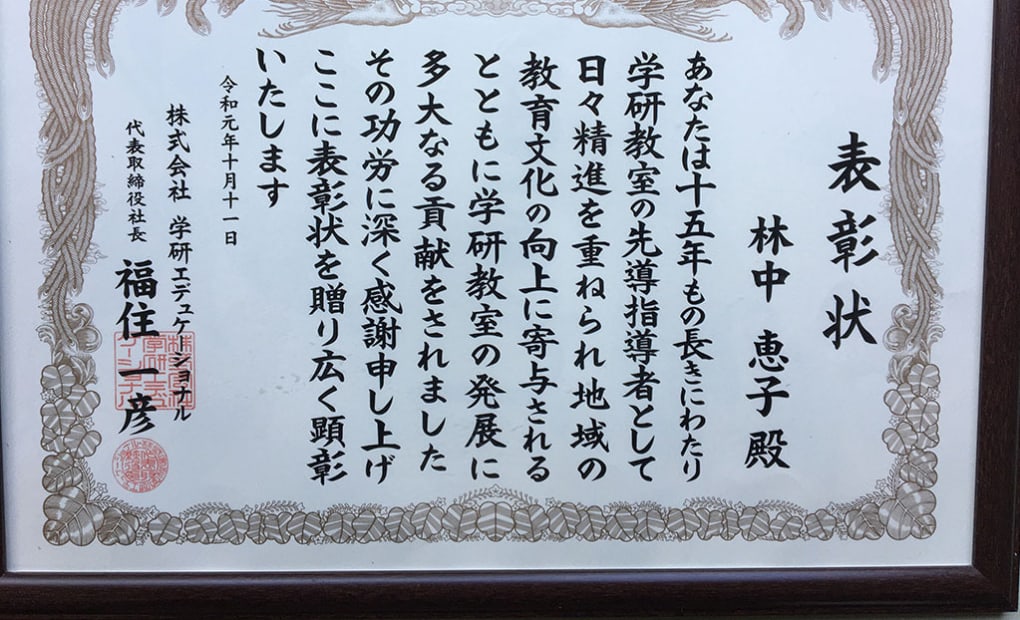 表彰状
林中 恵子 殿
あなたは十五年もの長きにわたり
学研教室の先導指導者として
日々精進を重ねられ地域の
教育文化の向上に寄与される
とともに学研教室の発展に
多大なる貢献をされました
その功労に深く感謝申し上げ
ここに表彰状を贈り広く顕彰
いたします
令和元年十月十一日
株式会社 学研エデュケーショナル
代表取締役社長 福住一彦